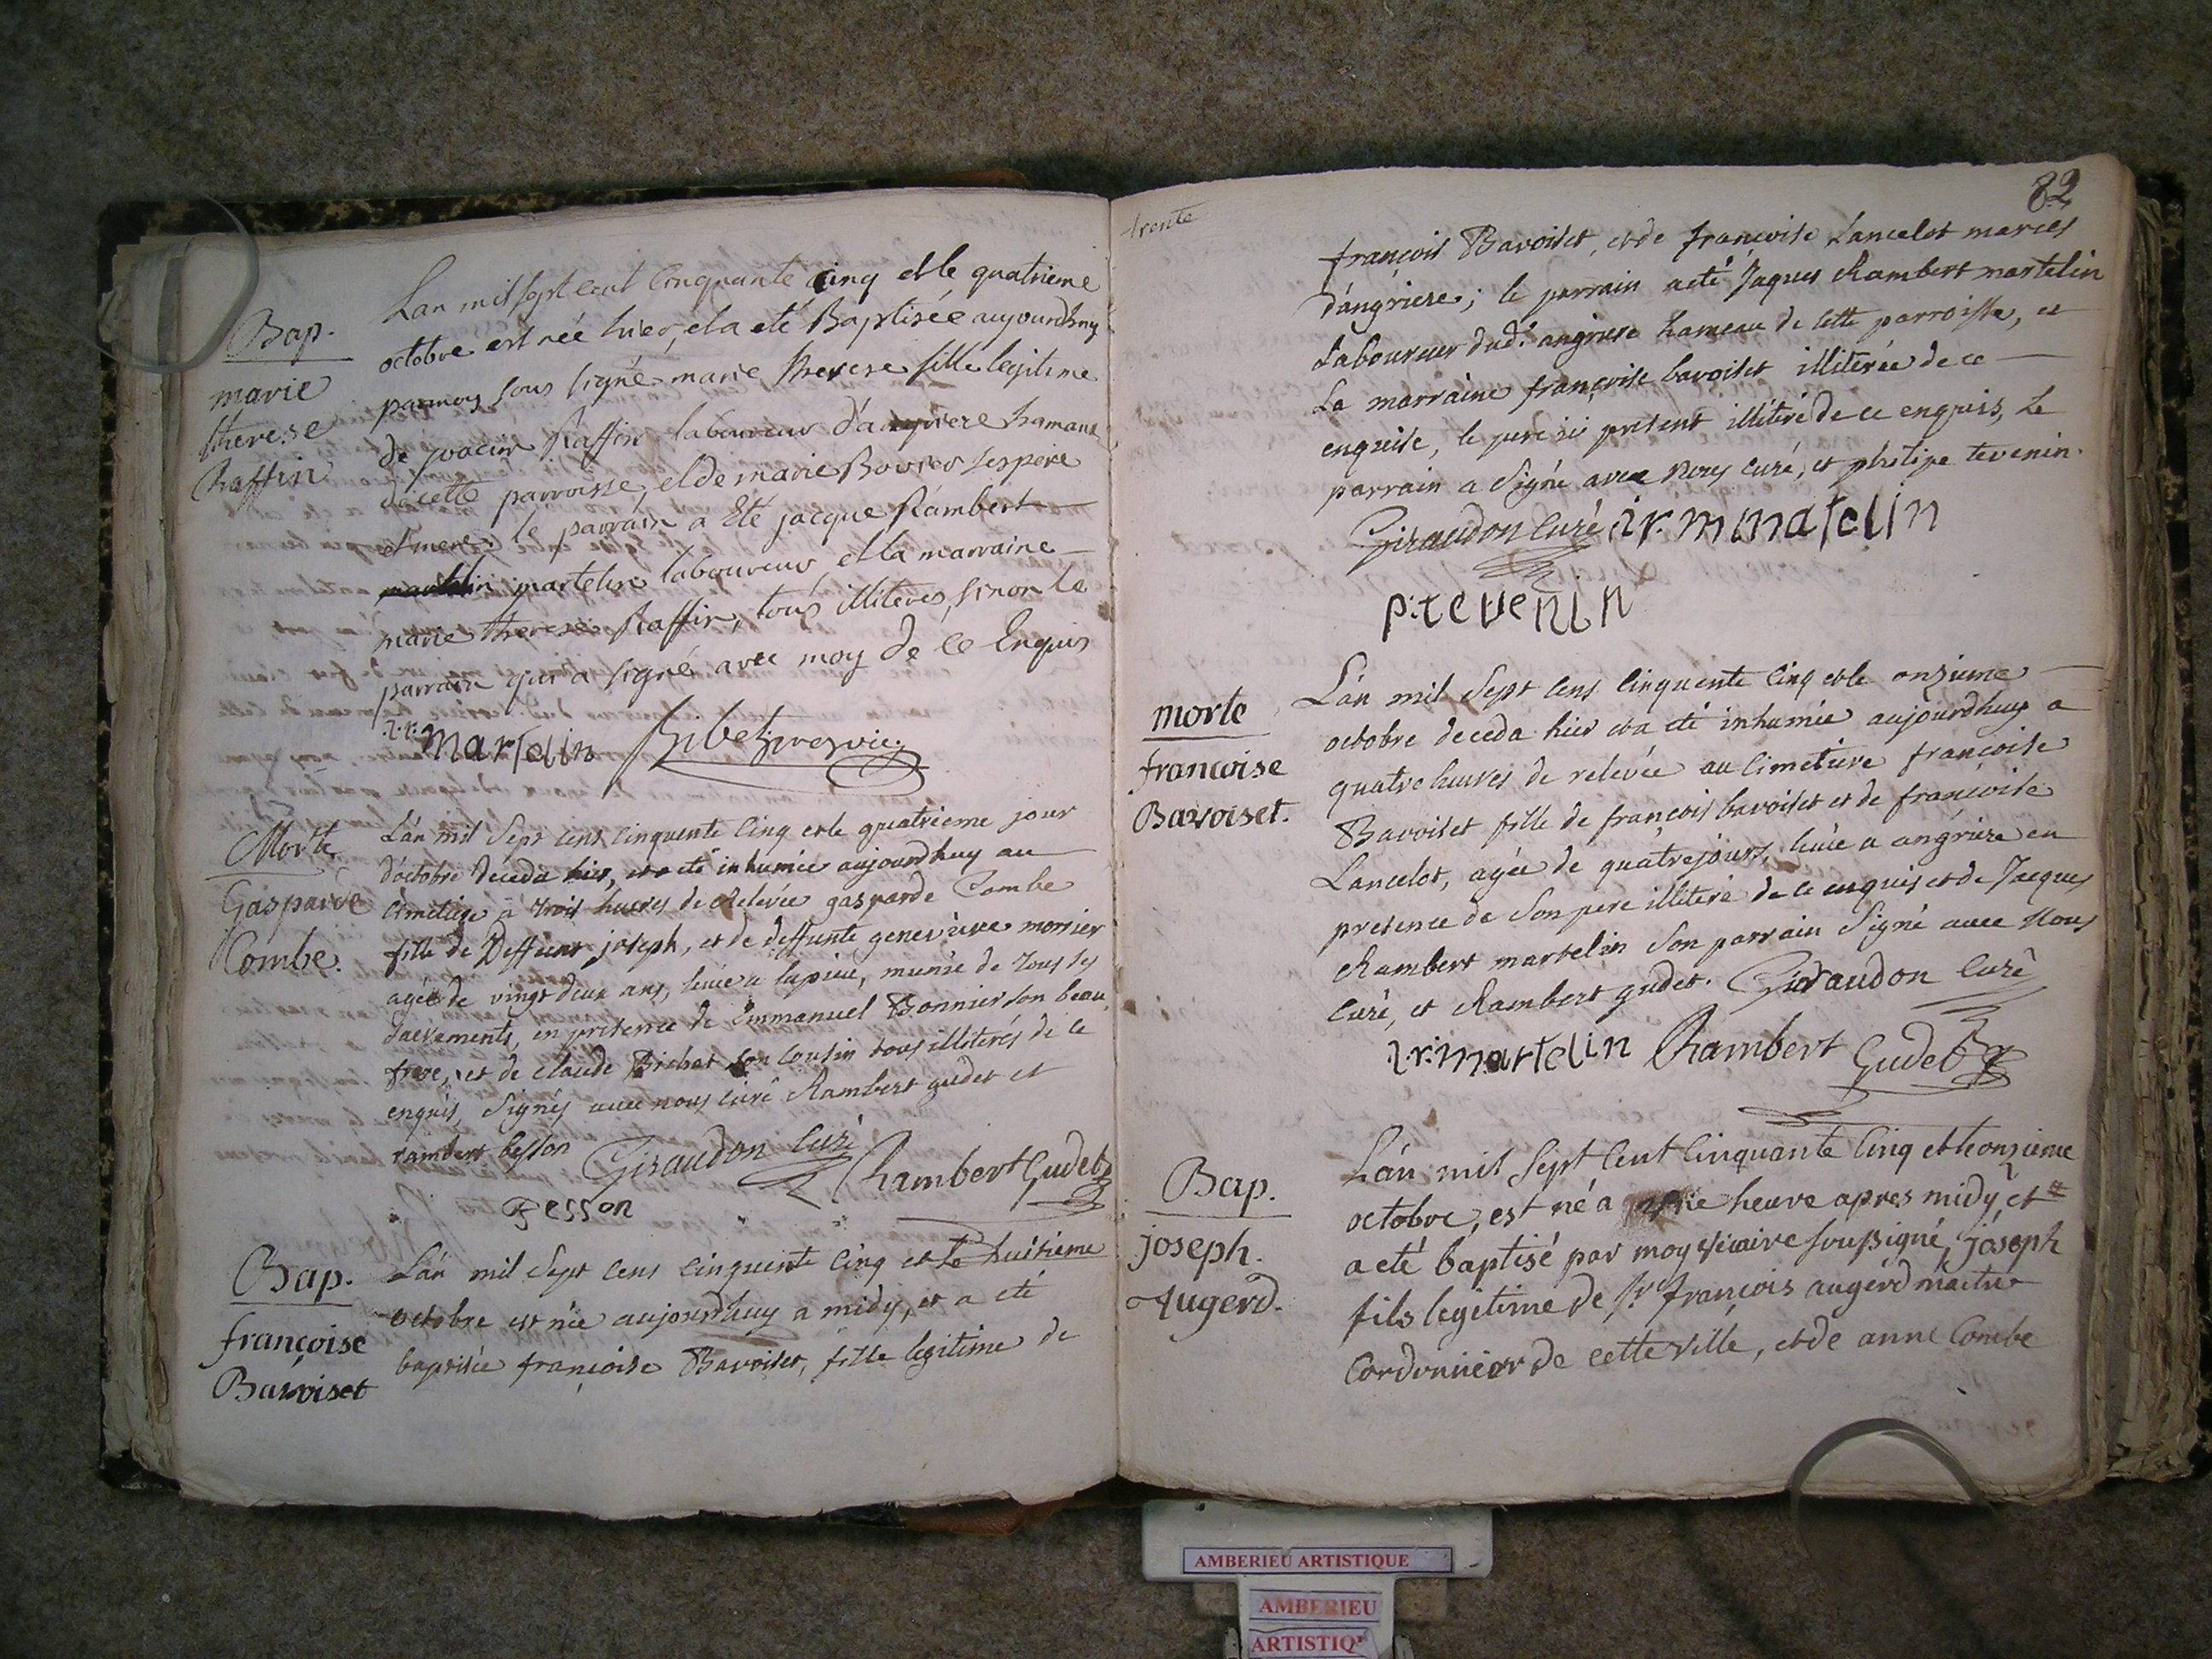 Bap.
marie
therese
Raffin
Lan mil sept cent cinquante cinq et le quatrieme
octobre est née hier, et a eté Baptisée aujourdhuy
par moy sous signé marie therese fille legitime
de Raffin laboureur d'angriere hamaux
de cette parroisse, et de marie Bovier ses pere
et mere; le parrain a Eté jacque Rambert
martelin laboureur et la marraine
marie therese Raffin, tous illiteres, sinon le
parrain qui a signé avec moy de ce Enquis
i.r. martelin Ribet vic.
Morte
Gasparde
Combe.
L'an mil Sept cens cinquente cinq et le quatrieme jour
d'octobre deceda hier, et a eté inhumée aujourdhuy au
cimetiere à trois heures de relevée gasparde Combe
fille de Deffunt joseph, et de deffunte genevieve
agée de vingt deux ans, munie de tous ses
sacrements, en presence de Emmanuel Bonnier son beau
frere, et de claude Bichat son cousin tous illiterés de ce
enquis, signés avec nous curé Rambert gudet et
rambert besson Giraudon Curé Rambert Gudet
Besson
Bap.
françoise
Bavoiset
L'an mil Sept cens cinquente cinq et le huitieme
octobre est née aujourdhuy a midy, et a eté
baptisée françoise Bavoiset, fille legitime de
trente
82
françois Bavoiset, et de françoise Lancelot mariés
d'angriere; le parrain a eté Jaques Rambert martelin
Laboureur dud.t angriere hameau de cette parroisse, et
La marraine françoise bavoiset illiterée de ce
enquise, le pere ici present illiteré de ce enquis, le
parrain a Signé avec nous curé, et philipe tevenin.
Giraudon Curé i.r. martelin
p: tevenin
morte
françoise
Bavoiset.
L'an mil Sept cens cinquente cinq et le onzieme
octobre deceda hier et a eté inhumée aujourdhuy a
quatre heures de relevée au cimetiere françoise
Bavoiset fille de françois bavoiset et de françoise
Lancelot, agée de quatre jours, a angriere en
presence de Son pere illiteré de ce enquis et de Jacques
Rambert martelin son parrain Signé avec Nous
Curé, et Rambert gudet. Giraudon Curé
i.r. martelin Rambert Gudet
Bap.
joseph.
Augerd.
L'an mil Sept Cent Cinquante Cinq et le onzieme
octobre, est né a heure apres midy, et
a eté baptisé par moy vicaire soussigné, joseph
fils legitime de Sr françois augerd maitre
Cordonnier de cette ville, et de anne Combe
AMBERIEU ARTISTIQUE
AMBERIEU
ARTISTIQ